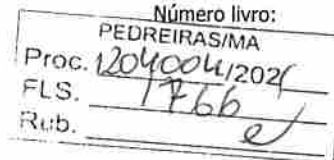 Número livro:
PEDREIRAS/MA
Proc. 1204004/2021
FLS. 1766
Rub.